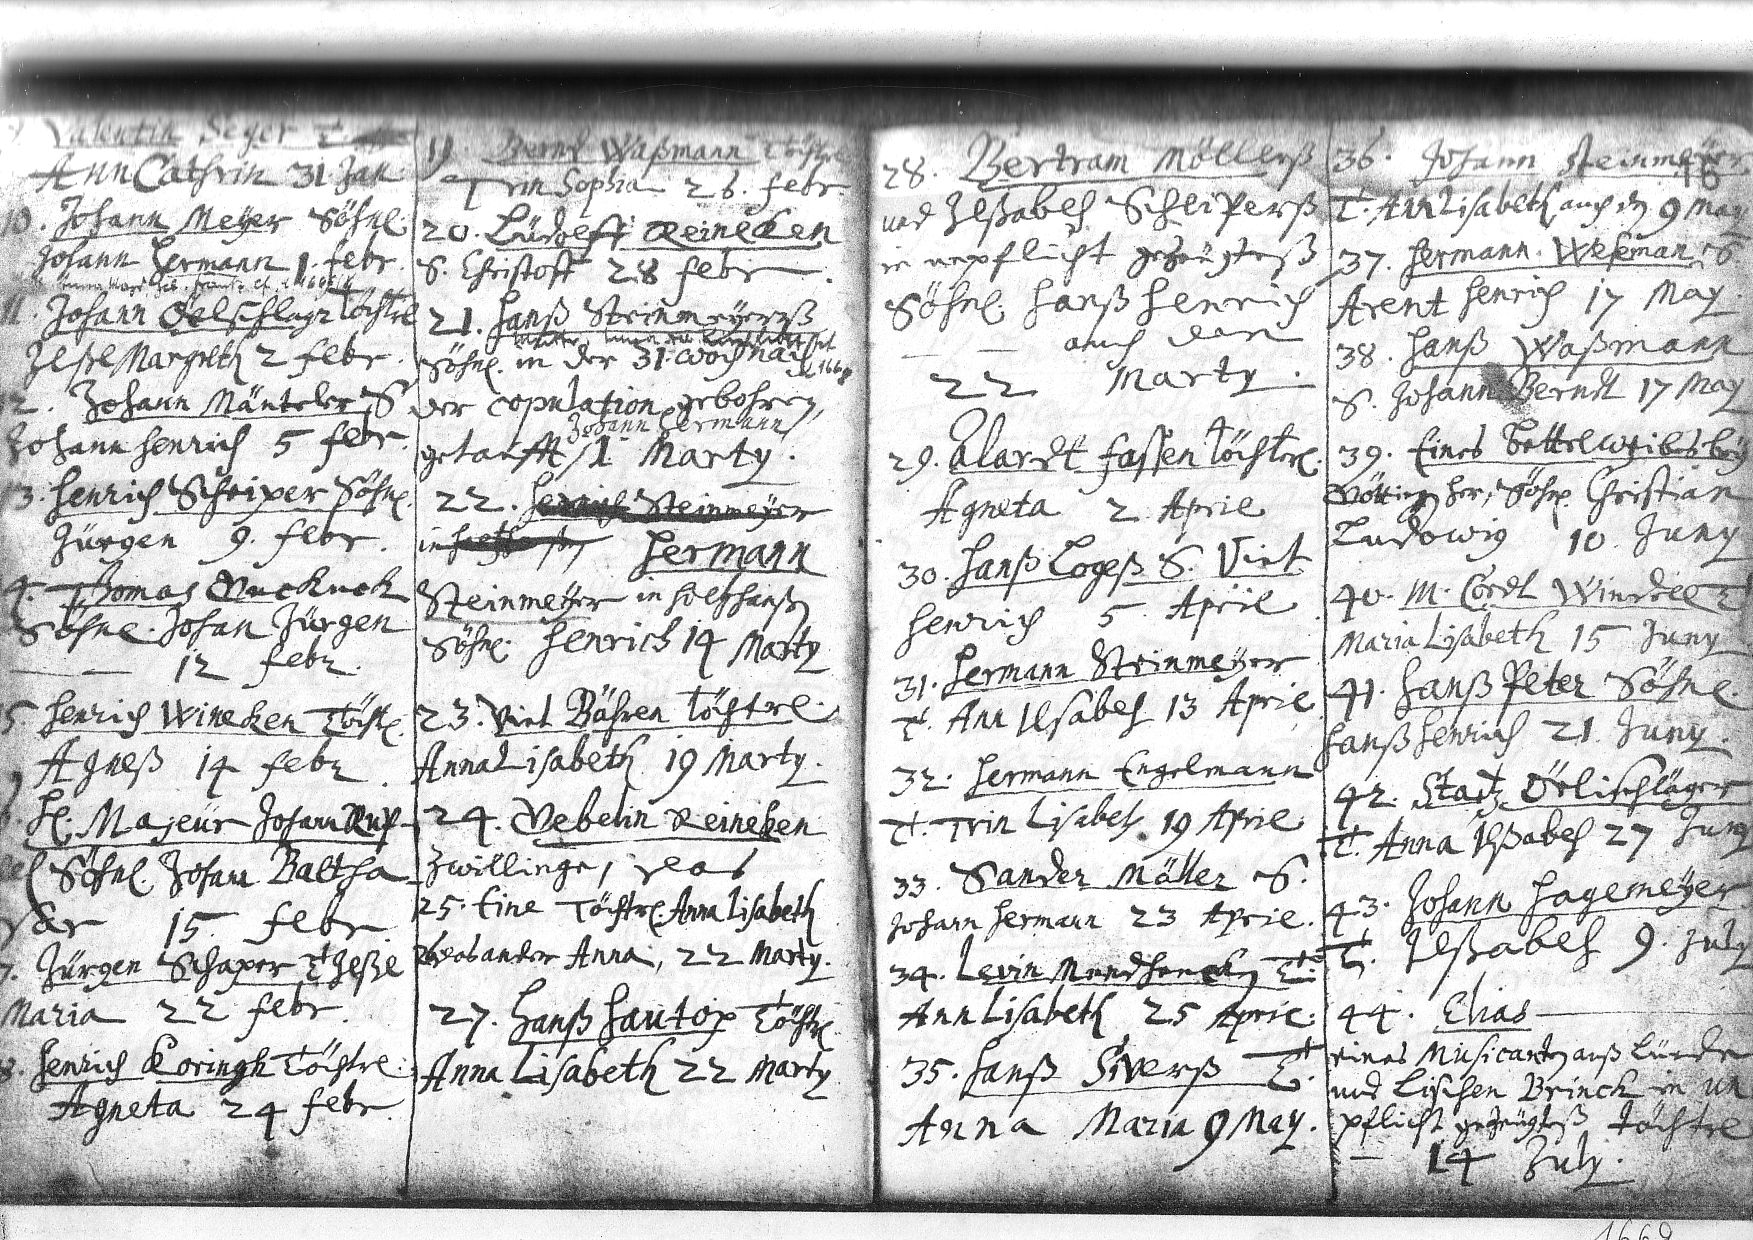 Valentin Seger T.
AnnCathrin 31 Jan
10. Johann Meyer Söhnl.
Johann Hermann 1. febr.
11. Johann Öelschlager Töchtrl
Ilse Margreth 2 febr.
12. Johann Mänteler S
Johann Henrich 5 febr.
13. Henrich Scheiper Söhnl.
Jürgen 9. febr.
4. Thomas Guckuck
Söhnl. Johan Jürgen
— — 12 febr.
15 Henrich Wineken Töchtl.
Agneß 14 febr
H. Majeur Johann
Söhnl. Johan Baltha
sar 15 febr
7. Jürgen Schaper T. Ilse
Maria 22 febr.
8. Henrich Koringh Töchtrl.
Agneta 24 febr.
19. Bernd Waßmann Töchtrl
Trin Sophia 26. febr
20. Lüdolff Reineken
S. Christoff 28 febr.
21. Hanß Steinmeyerß
Söhnl. in der 31. woch nach
der copulation gebohren,
Johann Hermann
getaufft 1 Marty.
22. Henrich Steinmeyer
in Hermann
Steinmeyer in Holtzhausen
Söhnl. Henrich 14 Marty
23. Viet Bähren Töchtrl.
AnnaLisabeth 19 Marty.
24. Webelin Reineken
Zwillinge, das
25. Eine Töchtrl. Anna Lisabeth
das ander Anna, 22 Marty.
27. Hanß Hautop Töchtrl.
Anna Lisabeth 22 Marty
28. Bertram Möllerß
und Ilßabeh Schliperß
in unpflicht gezeugteß
Söhnl. Hanß Henrich
— — auch den
22 Marty.
29. Alardt Fassen Töchtrl.
Agneta 2 April
30. Hanß Logeß S. Viet
Henrich 5 April
31. Hermann Steinmeyer
T. Ann Ilsabeh 13 April
32. Hermann Engelmann
T. Trin Lisabeh 19 April
33. Sander Möller S.
Johann Hermann 23 April.
34. Levin T.
AnnLisabeth 25 April.
35. Hanß Siverß T.
Anna Maria 9 May.
36. Johann Steinmeyer
16
T. AnnLisabeth auch den 9 May
37. Hermann Weßman S
Arent Henrich 17 May.
38. Hanß Waßmann
S. Johann Berndt 17 May
39. Eines Bettelweibes bey
her, Söhnl. Christian
Ludowig 10 Juny
40. M. Cordt Windel T
Maria Lisabeth 15 Juny
41. Hanß Peter Söhnl.
Hanß Henrich 21. Juny.
42. Statz Öelischläger
T. Anna Ilßabeh 27 Juny
43. Johann Hagemeyer
T. Ilßabeh 9. July
44. Elias —
eines Musicanten auß Lünde
und Lischen Brinck in un
pflicht gezeugteß Töchtrl
— 14 July.
1669